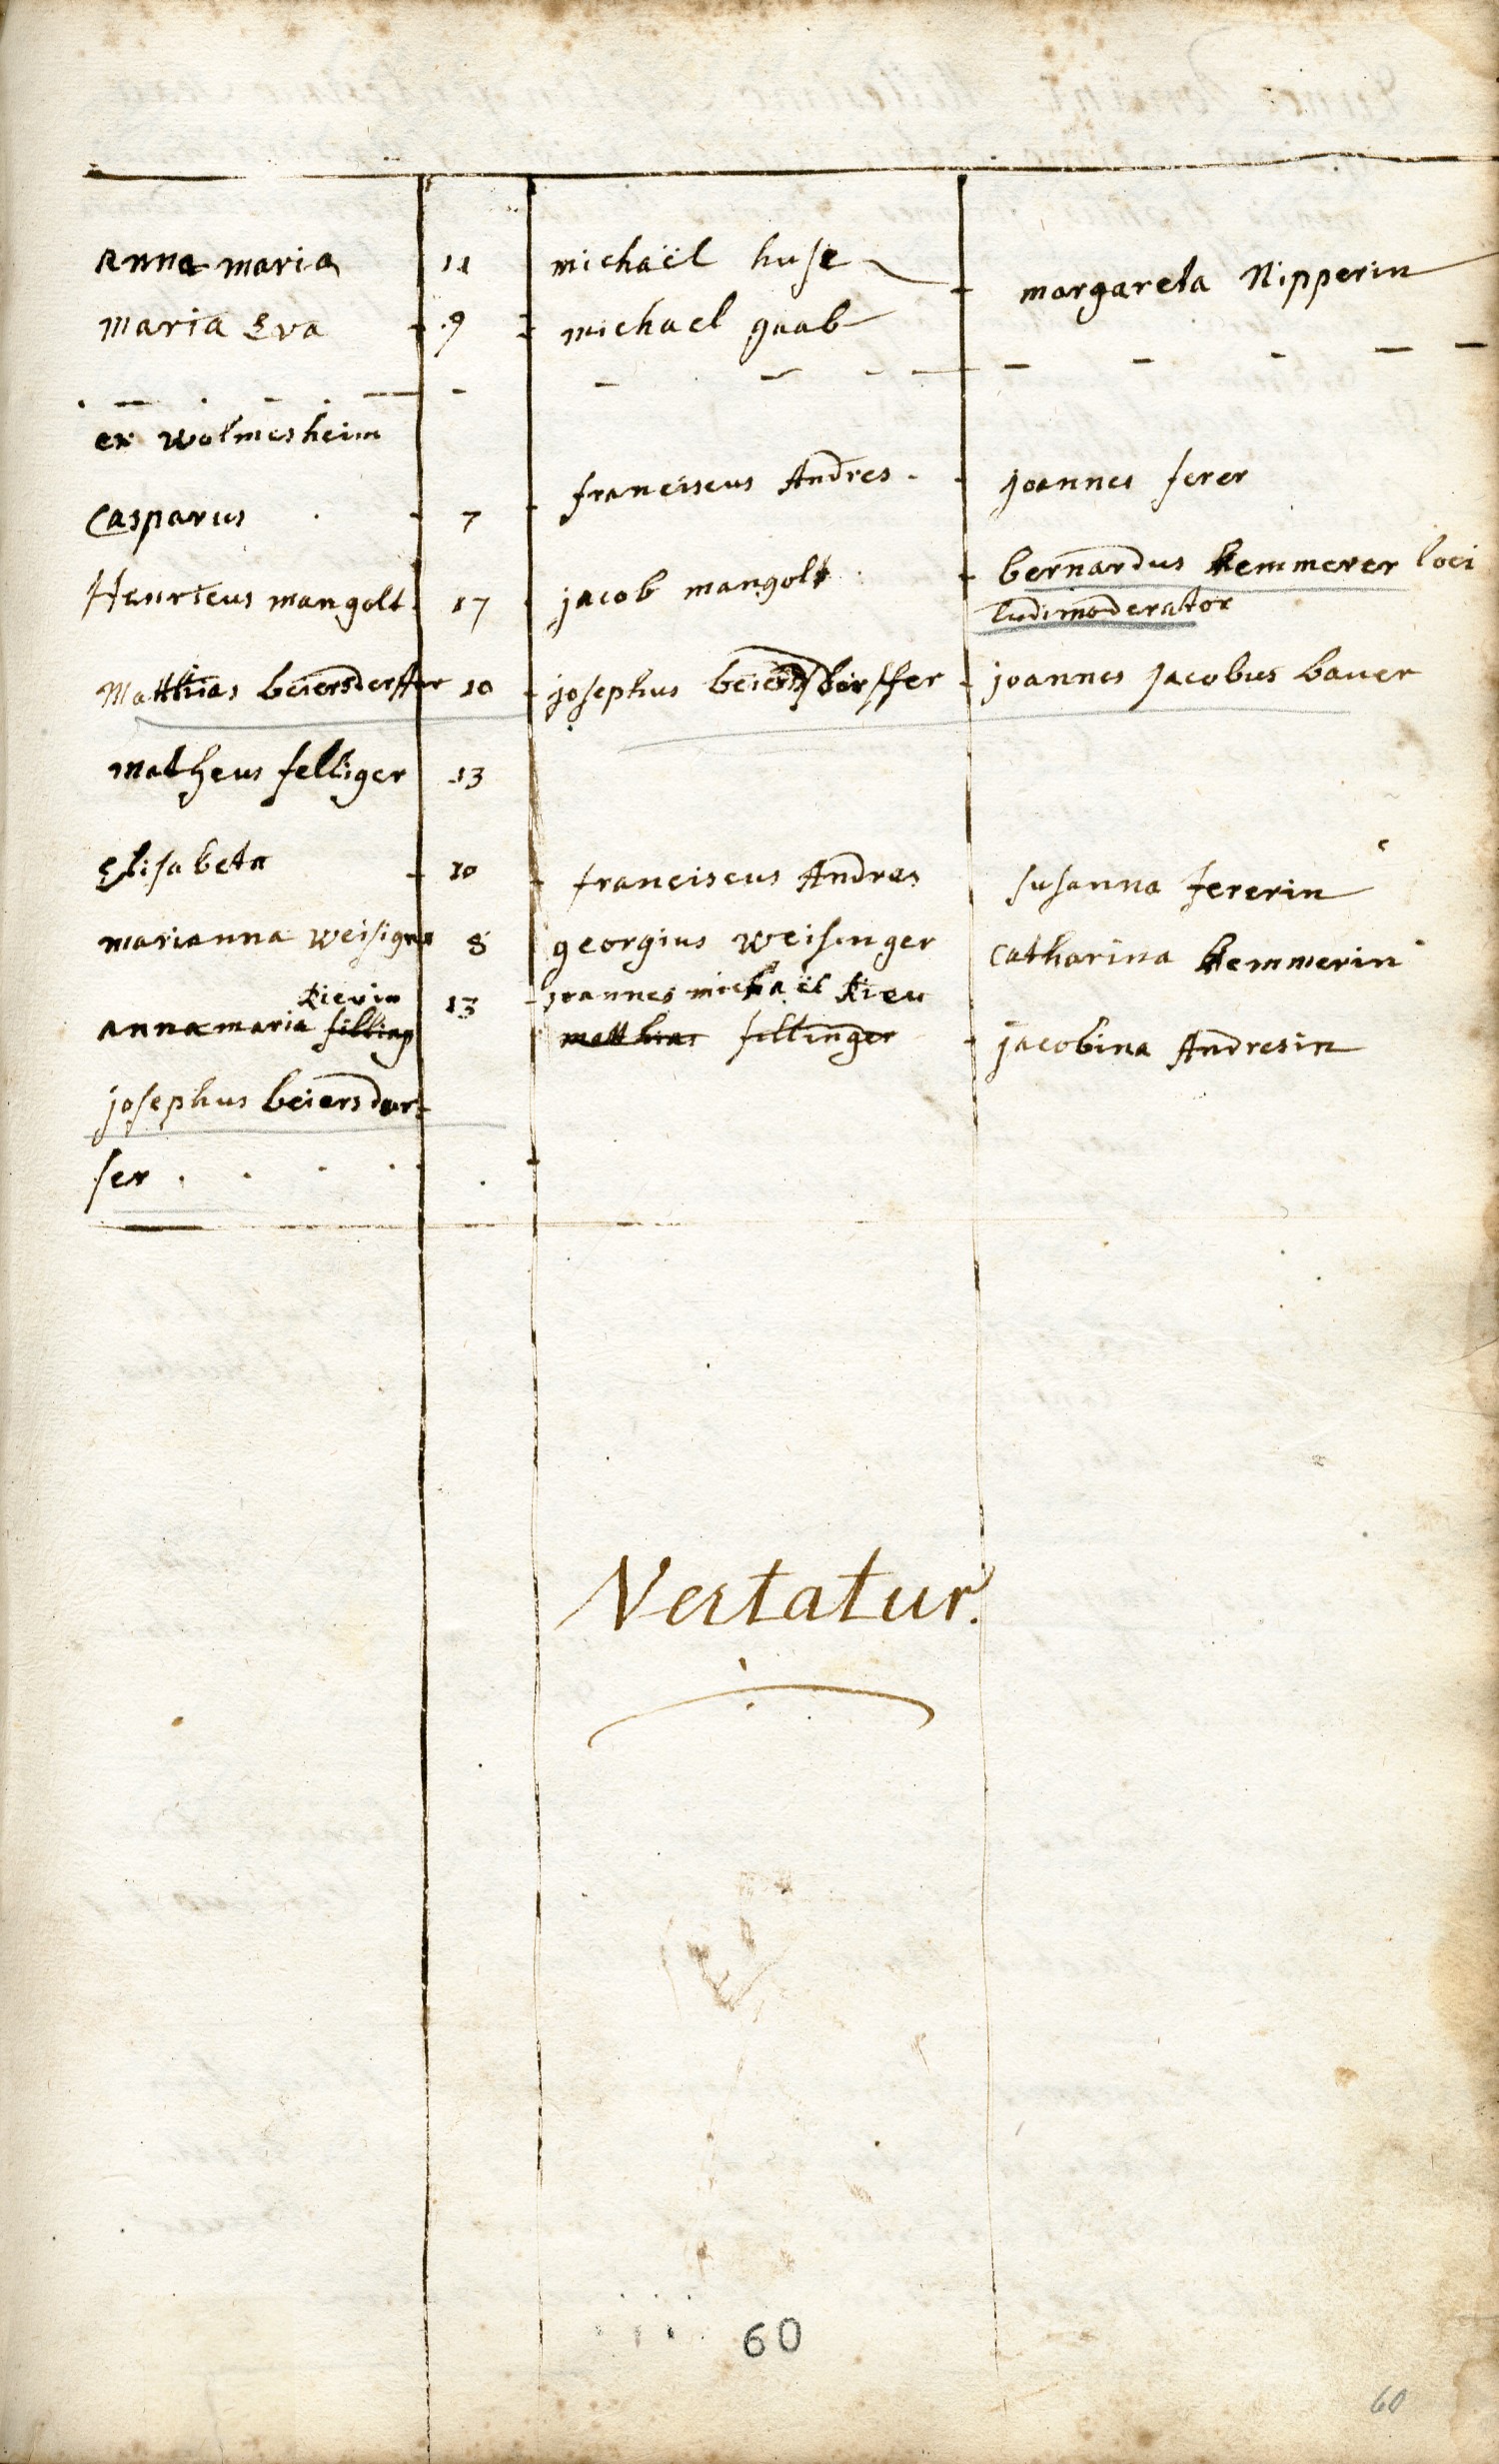 Anna maria 11 michaël huse margareta Nipperin
maria Eva 9 michael gaab
ex wolmesheim
Casparus 7 franciscus Andres joannes ferer
Henricus mangolt 17 jacob mangolt bernardus kemmerer loci
ludimoderator
Matthias beiersderffer 10 josephus beiersdorffer joannes jacobus bauer
matheus felliger 13
Elisabeta 10 franciscus Andres susanna fererin
marianna weisigna 8 georgius weisinger catharina kemmerin
Rievin 13 joannes michaël Rieu
annamaria filling matthias fillinger jacobina Andresin
josephus beiersdor-
fer
Vertatur.
60
60